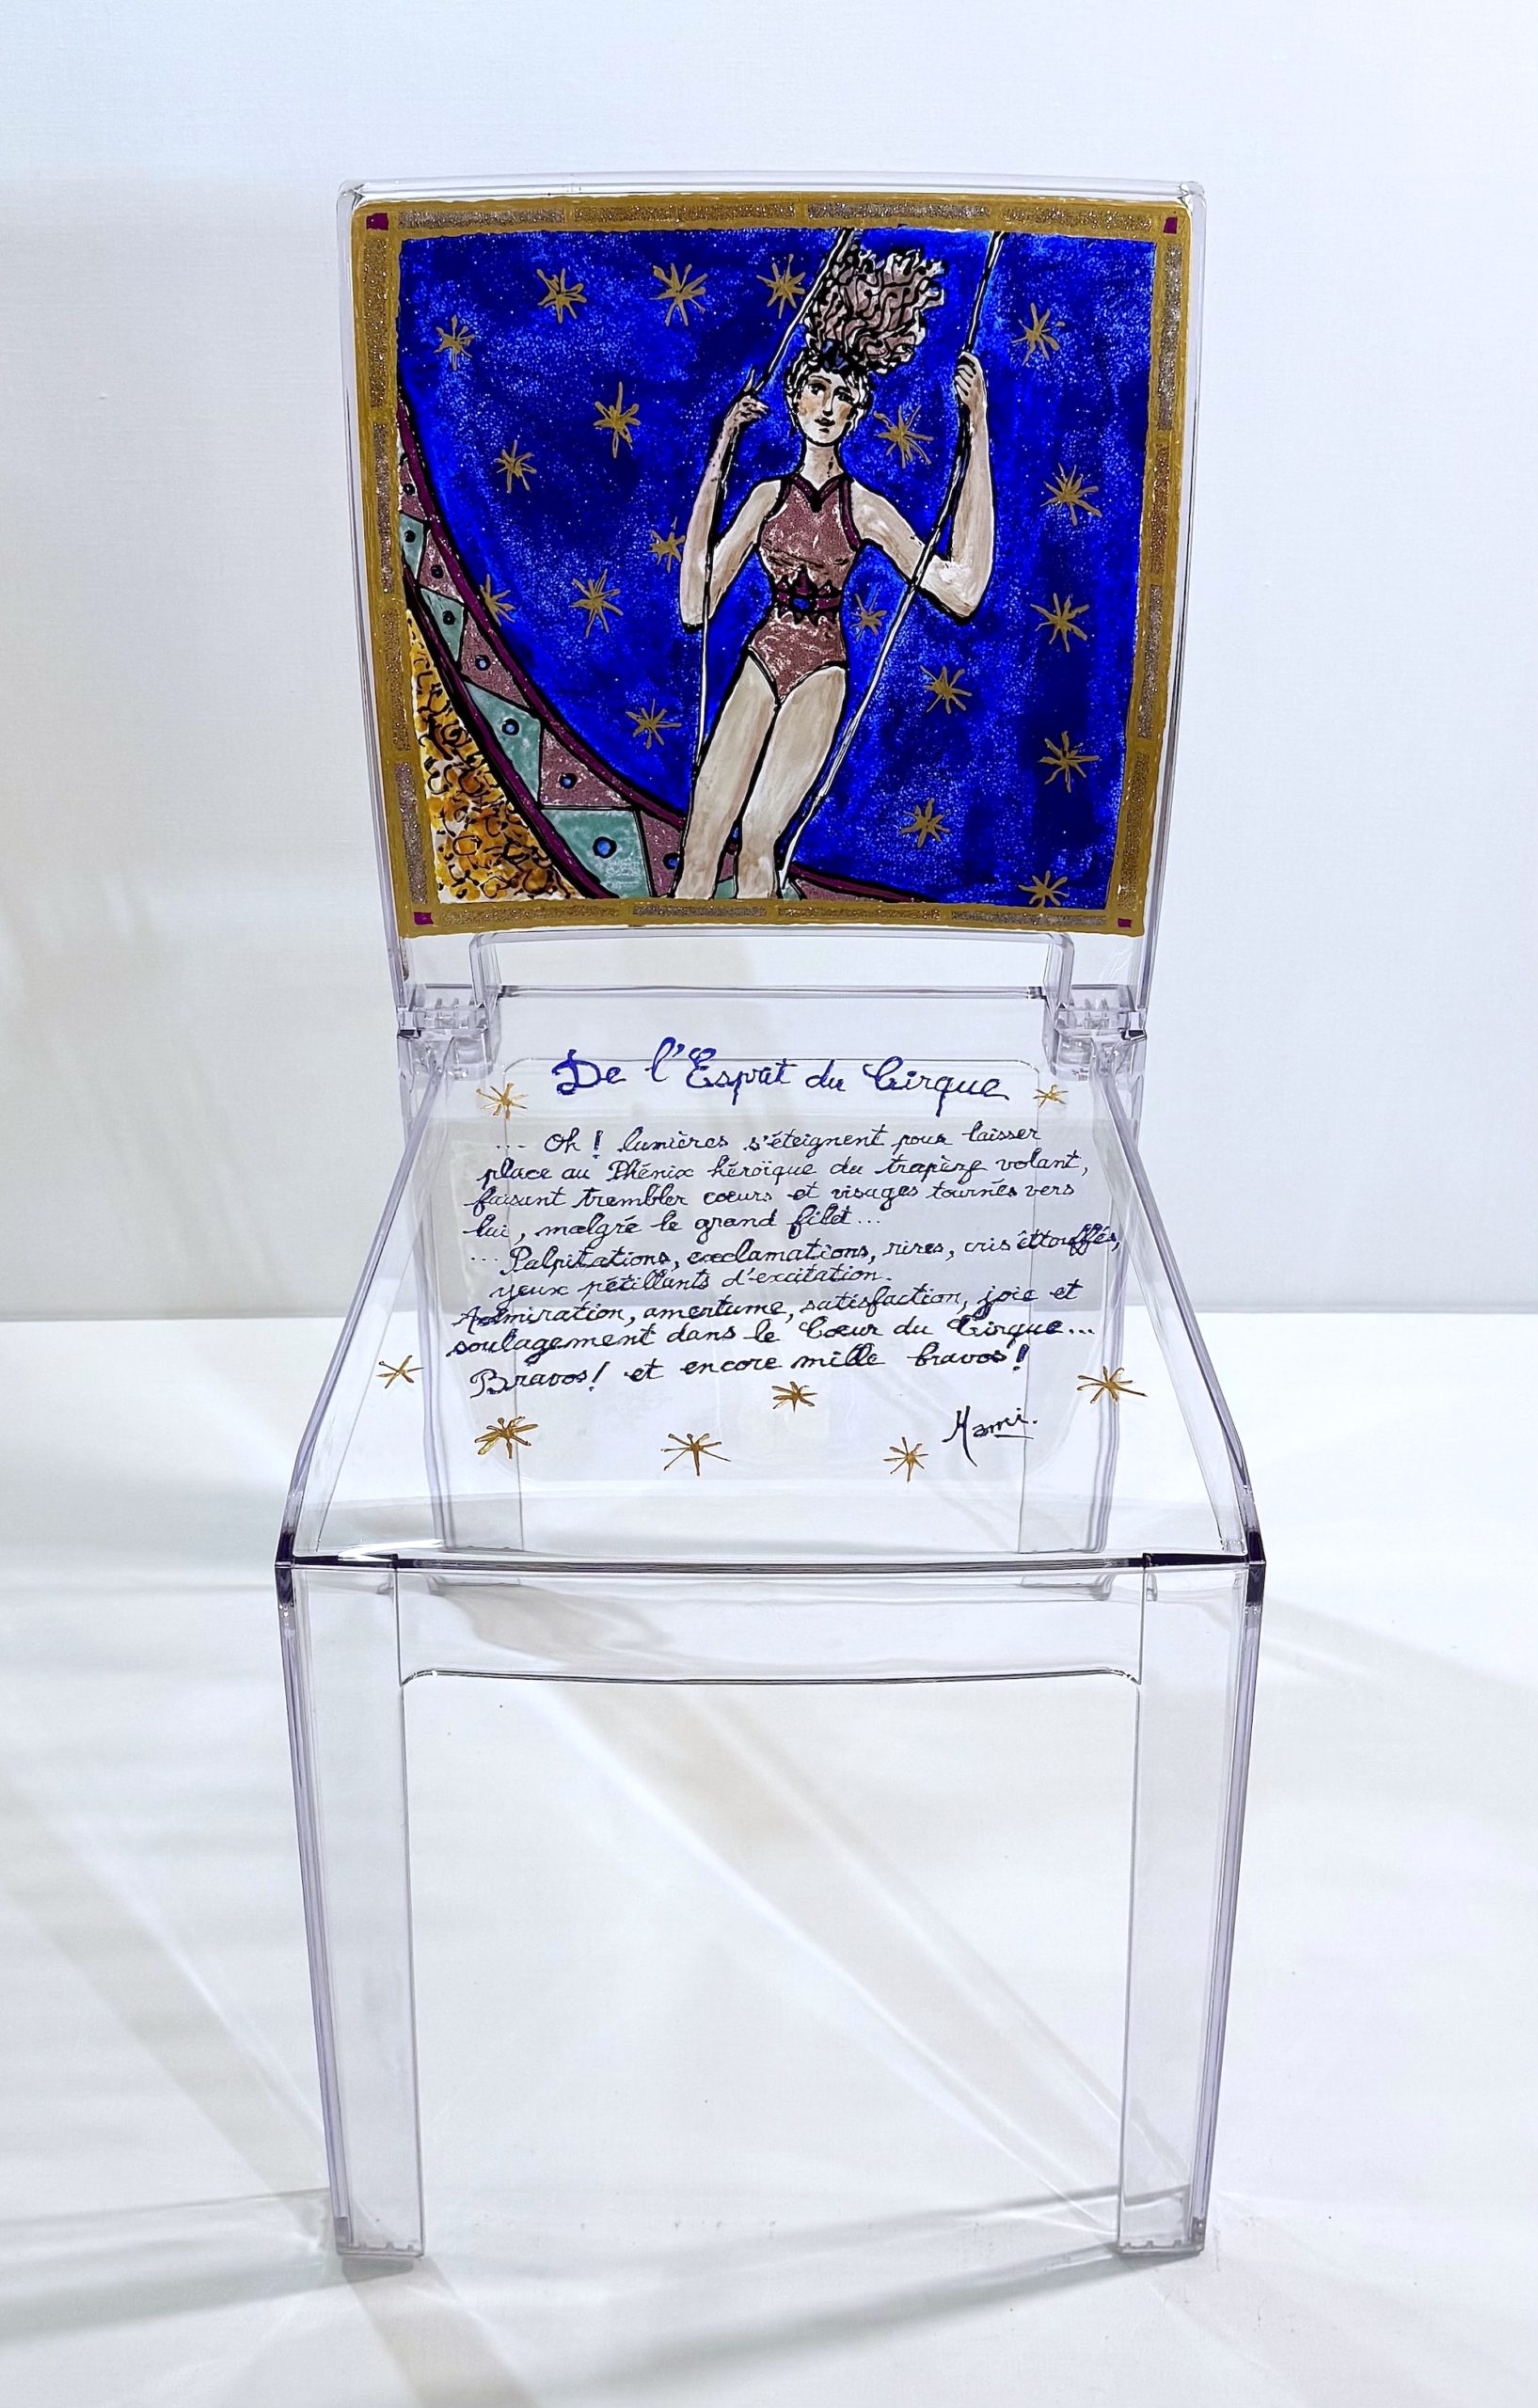 De l'Esprit du Cirque
... Oh ! lumières s'éteignent pour laisser
place au Phénix héroïque du trapèze volant,
faisant trembler cœurs et visages tournés vers
lui, malgré le grand filet...
... Palpitations, exclamations, rires, cris éttouffés,
yeux pétillants d'excitation.
Admiration, amertume, satisfaction, joie et
soulagement dans le Coeur du Cirque...
Bravos ! et encore mille bravos !
Mami.